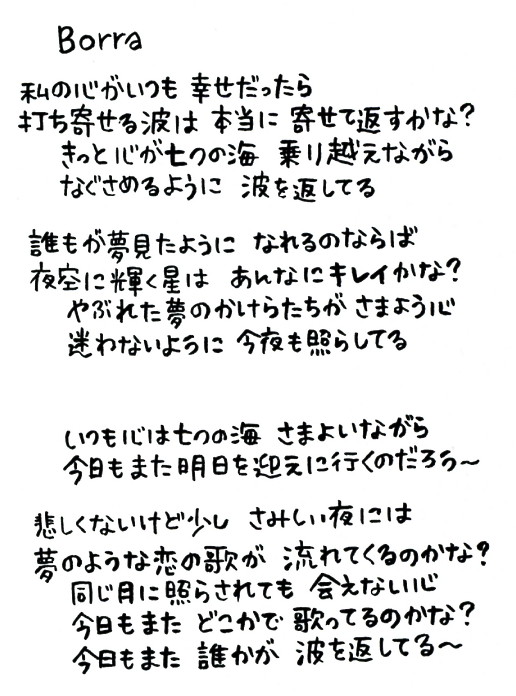 Borra
私の心がいつも 幸せだったら
打ち寄せる波は 本当に 寄せて返すかな?
きっと心が七つの海 乗り越えながら
なぐさめるように 波を返してる
誰もが夢見たように なれるのならば
夜空に輝く星は あんなにキレイかな?
やぶれた夢のかけらたちが さまよう心
迷わないように 今夜も照らしてる
いつも心は七つの海 さまよいながら
今日もまた明日を迎えに行くのだろう～
悲しくないけど少し さみしい夜には
夢のような恋の歌が 流れてくるのかな?
同じ月に照らされても 会えない心
今日もまた どこかで 歌ってるのかな?
今日もまた 誰かが 波を返してる～